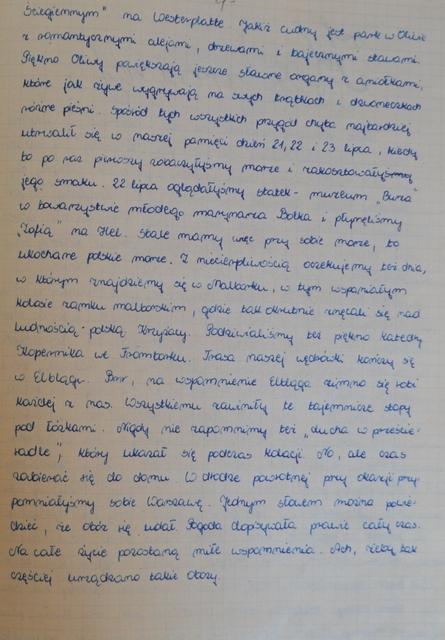 Ściegiennym" na Westerplatte. Jakiż cudny jest park w Oliwie
z romantycznymi alejami, drzewami i bajecznymi stawami.
Piękno Oliwy powiększają jeszcze sławne organy z aniołkami,
które jak żywe wygrywają na swych trąbkach i dzwoneczkach
różne pieśni. Spośród tych wszystkich przygód chyba najbardziej
utrwalił się w naszej pamięci dzień 21, 22 i 23 lipca, kiedy
to po raz pierwszy zobaczyłyśmy morze i zakosztowałyśmy
jego smaku. 22 lipca oglądałyśmy statek-muzeum „Burza"
w towarzystwie młodego marynarza Bolka i płynęliśmy
„Zofią" na Hel. Stale mamy więc przy sobie morze, to
ukochane polskie morze. Z niecierpliwością oczekujemy też dnia,
w którym znajdziemy się w Malborku, w tym wspaniałym
kolosie zamku malborskim, gdzie tak okrutnie znęcali się nad
ludnością polską Krzyżacy. Podziwialiśmy też piękno katedry
Kopernika we Fromborku. Trasa naszej wędrówki kończy się
w Elblągu. Brr, na wspomnienie Elbląga zimno się robi
każdej z nas. Wszystkiemu zawiniły te tajemnicze stopy
pod łóżkami. Nigdy nie zapomnimy też „ducha w przeście-
radle", który ukazał się podczas kolacji. No, ale czas
zabierać się do domu. W drodze powrotnej przy okazji przy-
pomniałyśmy sobie Warszawę. Jednym słowem można powie-
dzieć, że obóz się udał. Pogoda dopisywała prawie cały czas.
Na całe życie pozostaną miłe wspomnienia. Ach, żeby tak
częściej urządzano takie obozy.